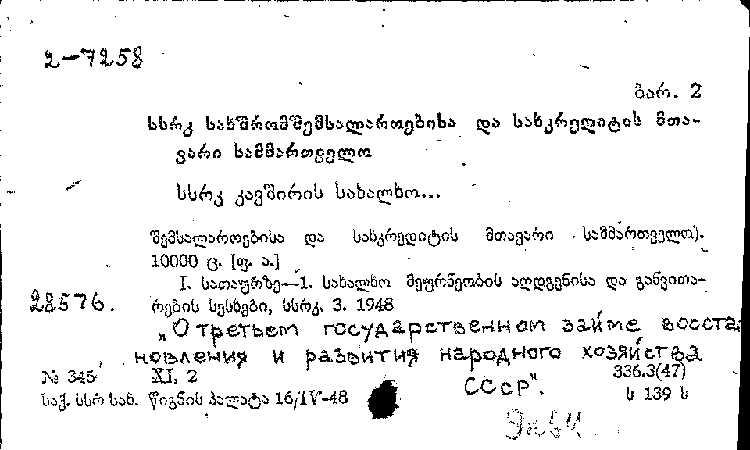 2-7258
ბარ. 2
სსრკ სახშრომშემსალაროებისა და სახკრედიტის მთა-
ვარი სამმართველო
სსრკ კავშირის სახალხო...
შემსალაროებისა და სახკრედიტის მთავარი სამმართველო).
10000 ც. [უ. ა.]
I. სათაურზე—1. სახალხო მეურნეობის აღდგენისა და განვითა-
28576. რების სესხები, სსრკ, 3. 1948
„О третьем государственном займе восста-
новления и развития народного хозяйства
№ 345 XI, 2 СССР". 336.3(47)
საქ. სსრ სახ. წიგნის პალატა 16/IV-48 ს 139 ს